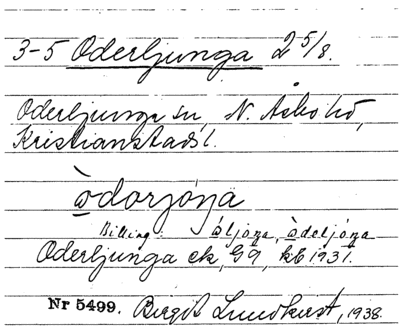 3-5 Oderljunga 2 5/8.
Oderljunga sn, N. Åsbo hd,
Kristianstads l.
òdorjóŋa
Billing: óljóŋa, òdeljóŋa
Oderljunga ek, G9, kb 1931.
Nr 5499. Birgit Lundkvist, 1938.